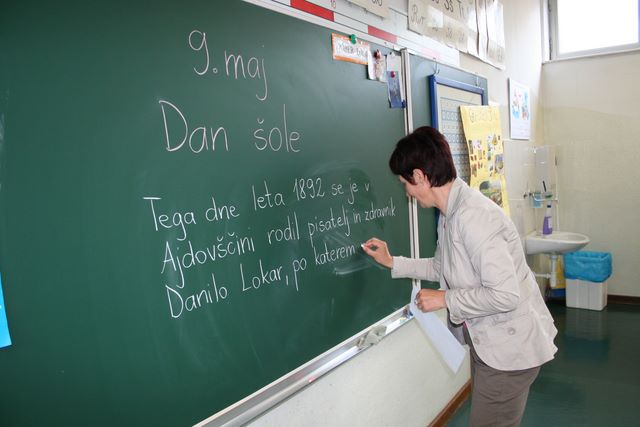 9. maj
Dan šole
Tega dne leta 1892 se je v
Ajdovščini rodil pisatelj in zdravnik
Danilo Lokar, po katerem